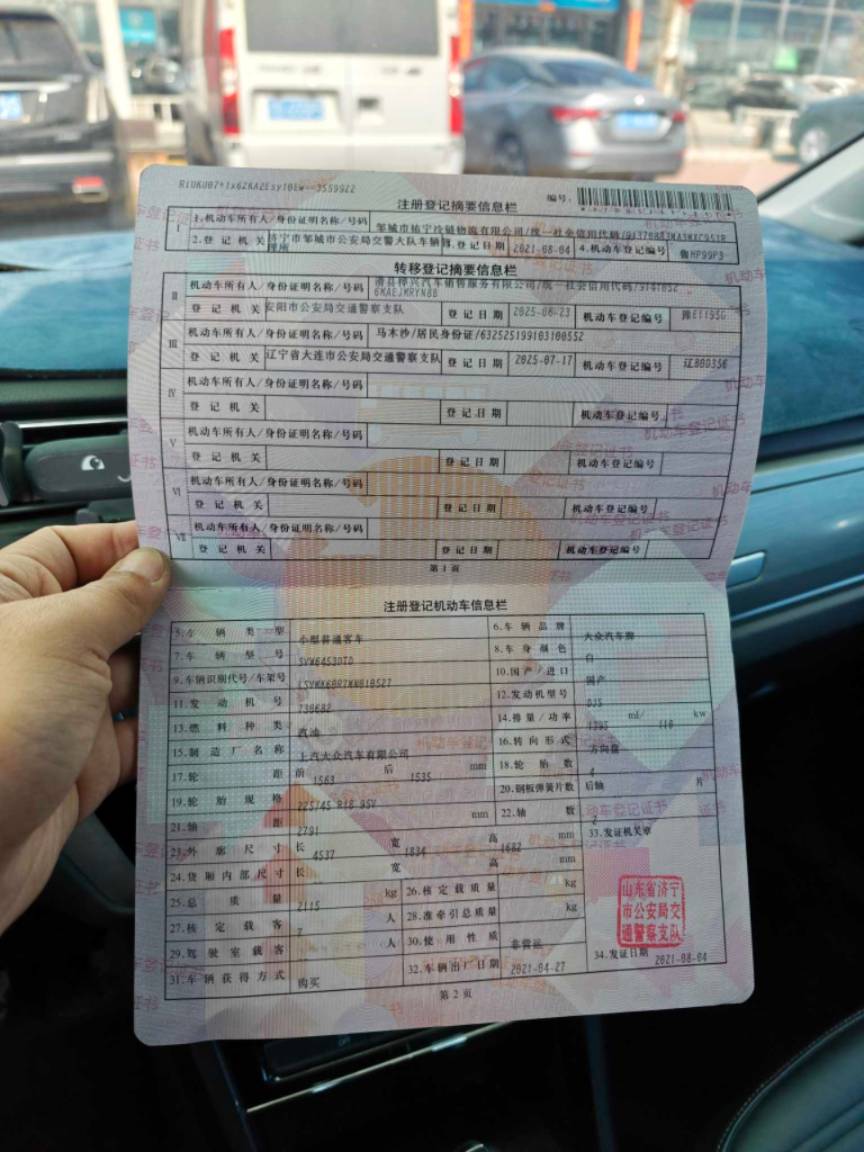 注册登记摘要信息栏
编号:
Ⅰ 1.机动车所有人/身份证明名称/号码 邹城市祐宁冷链物流有限公司/统一社会信用代码
2.登记机关 济宁市邹城市公安局交警大队车辆管理所 3.登记日期 2021-08-04 4.机动车登记编号 鲁HP99P3
转移登记摘要信息栏
Ⅱ 机动车所有人/身份证明名称/号码 汽车销售服务有限公司/统一社会信用代码
登记机关 安阳市公安局交通警察支队 登记日期 2025-06-23 机动车登记编号
Ⅲ 机动车所有人/身份证明名称/号码 马木沙/居民身份证/632525199103100552
登记机关 辽宁省大连市公安局交通警察支队 登记日期 2025-07-17 机动车登记编号
Ⅳ 机动车所有人/身份证明名称/号码
登记机关 登记日期 机动车登记编号
Ⅴ 机动车所有人/身份证明名称/号码
登记机关 登记日期 机动车登记编号
Ⅵ 机动车所有人/身份证明名称/号码
登记机关 登记日期 机动车登记编号
Ⅶ 机动车所有人/身份证明名称/号码
登记机关 登记日期 机动车登记编号
第1页
注册登记机动车信息栏
5.车辆类型 小型普通客车 6.车辆品牌 大众汽车牌
7.车辆型号 SVW6453DTD 8.车身颜色 白
9.车辆识别代号/车架号 10.国产/进口 国产
11.发动机号 12.发动机型号 DJS
13.燃料种类 汽油 14.排量/功率 ml/ kw
15.制造厂名称 上汽大众汽车有限公司 16.转向形式 方向盘
17.轮距 前 1563 后 1535 mm 18.轮胎数 4
19.轮胎规格 225/45 R18 95V 20.钢板弹簧片数 后轴 片
21.轴距 2791 mm 22.轴数 2
23.外廓尺寸 长 4537 宽 1834 高 1682 mm 33.发证机关章
24.货厢内部尺寸 长 宽 高 mm
25.总质量 2115 kg 26.核定载质量 kg
27.核定载客 7 人 28.准牵引总质量 kg
29.驾驶室载客 人 30.使用性质 非营运
31.车辆获得方式 购买 32.车辆出厂日期 2021-04-27 34.发证日期 2021-08-04
山东省济宁
市公安局交
通警察支队
第2页